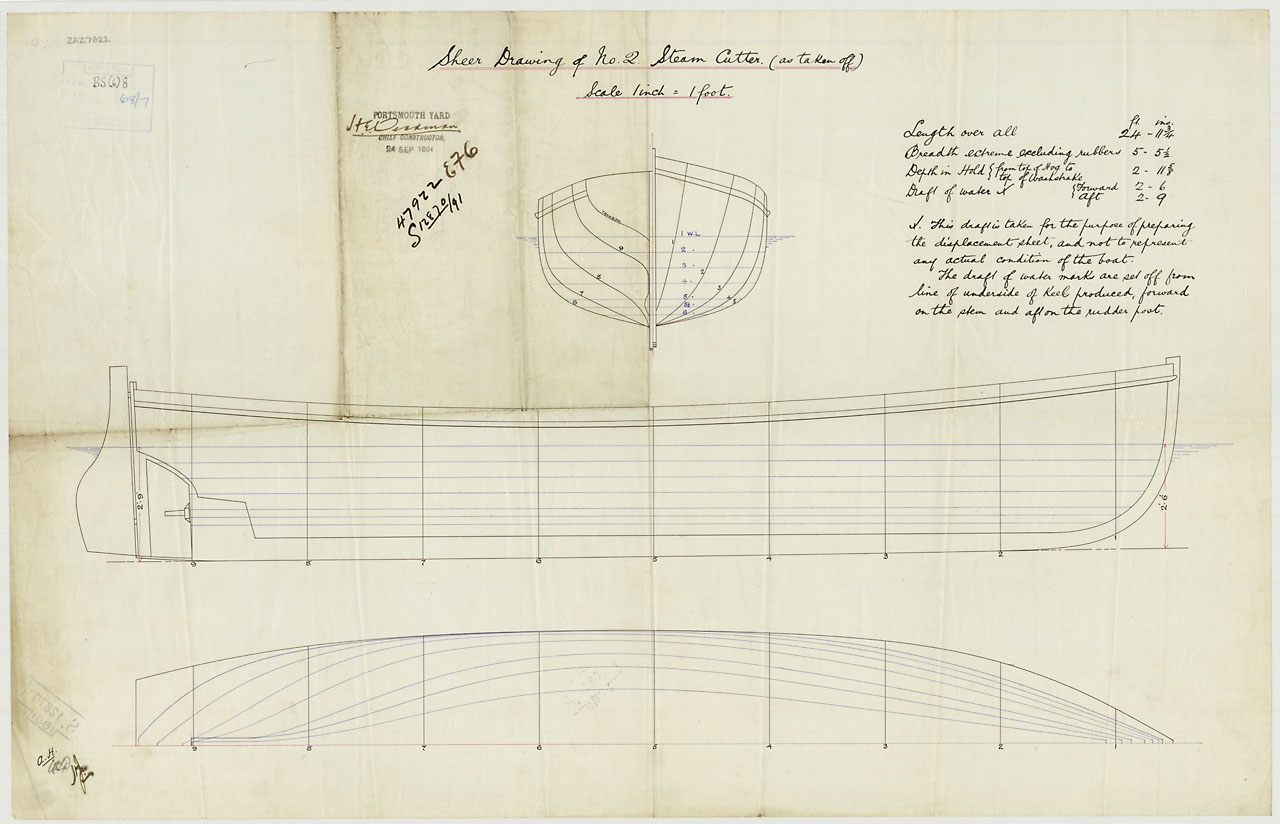 ZAZ7822
BS(6)8
68/7
Sheer Drawing of No. 2 Steam Cutter. (as taken off)
Scale 1 inch = 1 foot.
PORTSMOUTH YARD
CHIEF CONSTRUCTOR,
24 SEP 1891
47922 E76
S12870/91
ft ins.
Length over all 24 - 11 3/4
Breadth extreme excluding rubbers 5 - 5 1/2
Depth in Hold { from top of Hog to top of Washstrake 2 - 11 5/8
Draft of water X { Forward 2 - 6
Aft 2 - 9
X. This draft is taken for the purpose of preparing
the displacement sheet, and not to represent
any actual condition of the boat.
The draft of water marks are set off from
line of underside of Keel produced, forward
on the stem and aft on the rudder post.
TRANSOM
1 W.L
2
3
4
5
5½
6
9
8
7
6
1
2
3
4
5
2'.9"
2'.6"
9 8 7 6 5 4 3 2 1
9 8 7 6 5 4 3 2 1
A.H.